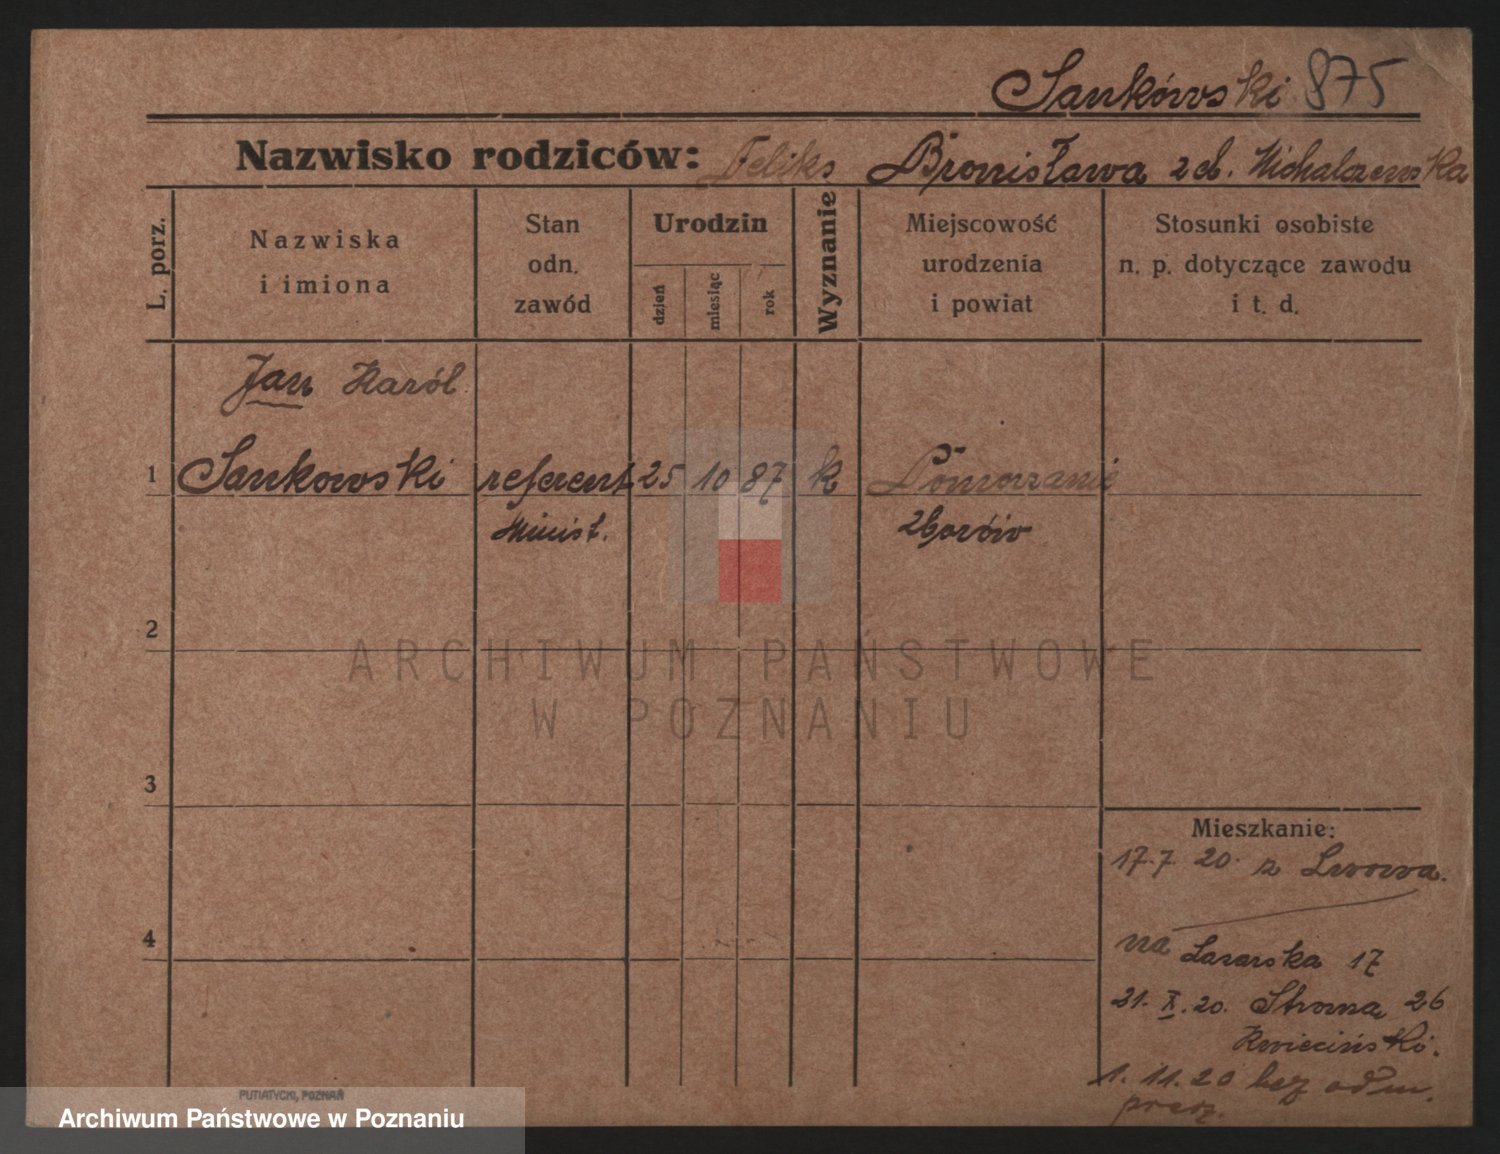 Sankówski 875
Nazwisko rodziców: Feliks Bronisława z d. Michalczewska
L. porz.
Nazwiska
i imiona
Stan
odn.
zawód
Urodzin
dzień
miesiąc
rok
Wyznanie
Miejscowość
urodzenia
i powiat
Stosunki osobiste
n. p. dotyczące zawodu
i t. d.
Jan Karól
1 Sankowski referent 25 10 87 k Pomorzanie
Minist. Zborów
2
ARCHIWUM PAŃSTWOWE
W POZNANIU
3
Mieszkanie:
17.7.20. z Lwowa.
4
na Lazarska 17
21.X.20. Stroma 26
Kwieciński.
1.11.20 bez odm.
PUTIATYCKI, POZNAŃ
Archiwum Państwowe w Poznaniu